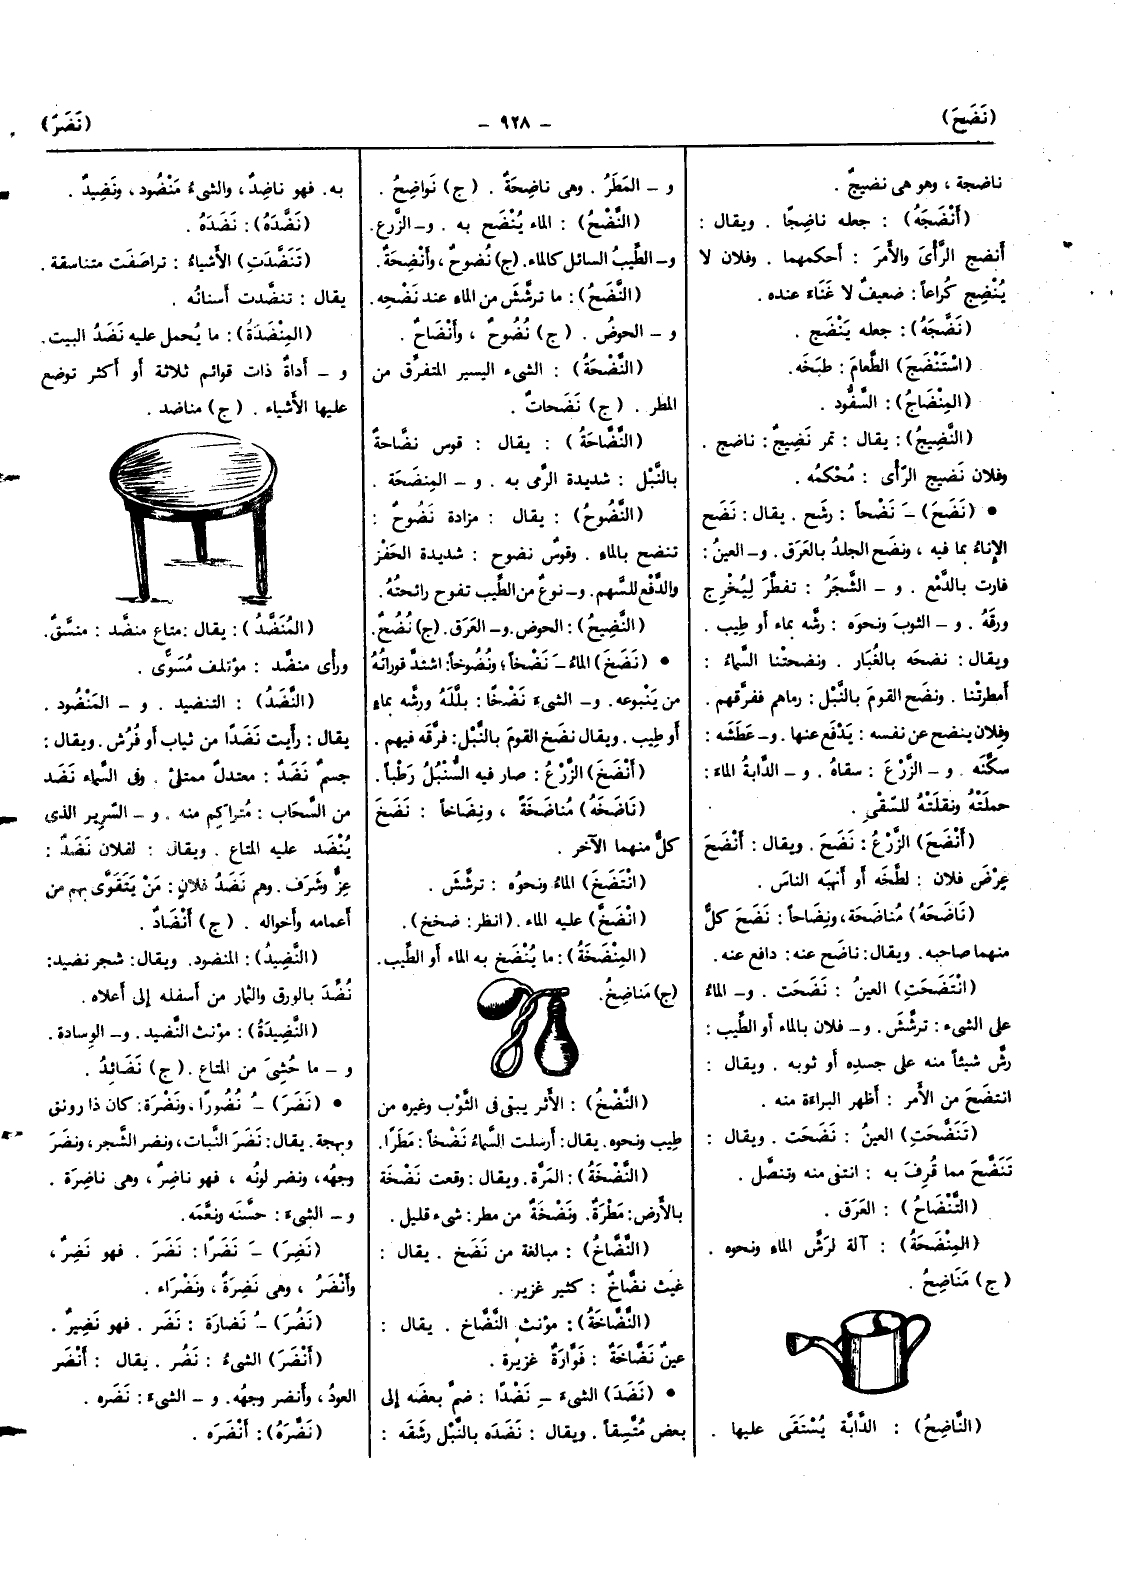 (نَضَحَ)
- ٩٢٨ -
(نَضَرَ)
ناضجة ، وهو هى نضيجٌ .
(أَنْضَجَهُ) : جعله ناضِجًا . ويقال :
أنضج الرَّأىَ والأمرَ : أحكمهما . وفلان لا
يُنْضِج كُراعاً : ضعيفٌ لا غَنَاءَ عنده .
(نَضَّجَهُ) : جعله يَنْضَج .
(اسْتَنْضَجَ) الطَّعامَ : طبَخَه .
(المِنْضَاجُ) : السَّفُّود .
(النَّضِيجُ) : يقال : تمر نَضِيجٌ : ناضج .
وفلان نَضيج الرَّأى : مُحْكمُه .
• (نَضَحَ) ـَ نَضْحاً : رشَح . يقال : نَضَح
الإناءُ بما فيه ، ونضَح الجلدُ بالعَرَق . و- العينُ :
فارت بالدَّمْع . و – الشَّجَرُ : تفطَّرَ لِيُخْرِج
ورقَهُ . و – الثوبَ ونحوَه : رشَّه بماء أو طِيب .
ويقال : نضحَه بالغُبَار . ونضحتْنا السَّماءُ :
أمطرتْنا . ونضَح القومَ بالنَّبْل : رماهم ففرَّقهم .
وفلان ينضح عن نفسه : يَدْفَع عنها . و- عَطَشَه :
سكَّنَه . و – الزَّرْعَ : سقاهُ . و – الدَّابةُ الماءَ :
حملَتْهُ ونقلَتْهُ للسَّقْىِ .
(أَنْضَحَ) الزَّرْعُ : نَضَحَ . ويقال : أَنْضَحَ
عِرْضَ فلان : لطَّخَه أو أنهبَه الناسَ .
(نَاضَحَهُ) مُناضَحَة ، ونِضَاحاً : نَضَحَ كلٌّ
منهما صاحبه . ويقال : ناضَح عنه : دافع عنه .
(انْتَضَحَتِ) العينُ : نَضَحَت . و- الماءُ
على الشىء : ترشَّش . و – فلان بالماء أو الطِّيب :
رشَّ شيئاً منه على جسدِه أو ثوبه . ويقال :
انتضَحَ من الأمر : أظهر البراءة منه .
(تَنَضَّحَتِ) العينُ : نَضَحَت . ويقال :
تَنَضَّحَ مما قُرِفَ به : انتفى منه وتنصَّل .
(التَّنْضَاحُ) : العَرَق .
(المِنْضَحَةُ) : آلة لرَشِّ الماء ونحوه .
(ج) مَنَاضِحُ .
(النَّاضِحُ) : الدَّابَّة يُسْتَقَى عليها .
و – المَطَرُ . وهى ناضِحَةٌ . (ج) نَواضِحُ .
(النَّضْحُ) : الماء يُنْضَح به . و- الزَّرع .
و- الطِّيبُ السائل كالماء . (ج) نُضوحٌ ، وأنْضِحَةٌ .
(النَّضَحُ) : ما ترشَّشَ من الماء عند نَضْحِه .
و – الحوضُ . (ج) نُضُوحٌ ، وأَنْضَاحٌ .
(النَّضْحَةُ) : الشىء اليسير المتفرِّق من
المطر . (ج) نَضَحاتٌ .
(النَّضَّاحَةُ) : يقال : قوس نضَّاحةٌ
بالنَّبْل : شديدة الرَّمى به . و – المِنضَحَة .
(النَّضُوحُ) : يقال : مزادة نَضُوحٌ :
تنضح بالماء . وقوسٌ نضوح : شديدة الحَفْز
والدَّفْع للسَّهم . و- نوعٌ من الطِّيب تفوح رائحتُهُ .
(النَّضِيحُ) : الحوض . و- العَرَق . (ج) نُضُحٌ .
• (نَضَخَ) الماءُ ـَ نَضْخاً ، ونُضُوخاً : اشتدَّ فورانُهُ
من يَنْبوعه . و- الشىءَ نَضْخًا : بلَّلَهُ ورشَّه بماءٍ
أو طِيب . ويقال نضَخ القومَ بالنَّبْل : فرَّقه فيهم .
(أَنْضَخَ) الزَّرْعُ : صار فيه السُّنْبُلُ رَطْباً .
(نَاضَخَهُ) مُناضَخَةً ، ونِضَاخاً : نَضَخَ
كلٌّ منهما الآخر .
(انْتَضَخَ) الماءُ ونحوُه : ترشَّش .
(انْضَخَّ) عليه الماء . (انظر : ضخخ) .
(المِنْضَخَةُ) : ما يُنْضَخ به الماء أو الطِّيب .
(ج) مَنَاضِخُ .
(النَّضْخُ) : الأَثَر يبقى فى الثَّوْب وغيره من
طِيب ونحوه . يقال : أرسلت السَّماءُ نَضْخاً : مَطَرًا .
(النَّضْخَةُ) : المَرَّة . ويقال : وقعت نَضْخَة
بالأرض : مَطْرَةٌ . ونَضْخَةٌ من مطر : شىء قليل .
(النَّضَّاخُ) : مبالغة من نَضَخ . يقال :
غيث نضَّاخٌ : كثير غزير .
(النَّضَّاخَةُ) : مؤنث النَّضَّاخ . يقال :
عينٌ نَضَّاخَةٌ : فَوَّارَةٌ غزيرة .
• (نَضَدَ) الشىءَ ـِ نَضْدًا : ضمَّ بعضَه إلى
بعض مُتَّسِقاً . ويقال : نَضَدَه بالنَّبْل رشَقَه :
به . فهو ناضِدٌ ، والشىءُ مَنْضُود ، ونَضِيدٌ .
(نَضَّدَهُ) : نَضَدَهُ .
(تَنَضَّدَتِ) الأَشياءُ : تراصَفَت متناسقة .
يقال : تنضَّدت أسنانُه .
(المِنْضَدَةُ) : ما يُحمل عليه نَضَدُ البيت .
و – أداةٌ ذات قوائم ثلاثة أو أكثر توضع
عليها الأشياء . (ج) مناضد .
(المُنَضَّدُ) : يقال : متاع منضَّد : منسَّقٌ .
ورأى منضَّد : مؤتلف مُسَوًّى .
(النَّضَدُ) : التنضيد . و – المَنْضُود .
يقال : رأيت نَضَدًا من ثياب أو فُرُش . ويقال :
جسمٌ نَضَدٌ : معتدلٌ ممتلئ . وفى السَّماء نَضَد
من السَّحاب : مُتراكِم منه . و – السَّرير الذى
يُنْضَد عليه المتاع . ويقال : لفلان نَضَدٌ :
عِزٌّ وشَرَف . وهم نَضَدُ فلانٍ : مَنْ يَتَقَوَّى بهم من
أعمامه وأخواله . (ج) أَنْضَادٌ .
(النَّضِيدُ) : المنضود . ويقال : شجر نضيد :
نُضِّدَ بالورق والثمار من أسفله إلى أعلاه .
(النَّضِيدَةُ) : مؤنث النَّضيد . و- الوِسادة .
و – ما حُشِىَ من المتاع . (ج) نَضَائِدُ .
• (نَضَرَ) ـُ نُضُورًا ، ونَضْرَة : كان ذا رونق
وبهجة . يقال : نَضَرَ النَّبات ، ونضر الشَّجر ، ونضَرَ
وجهُه ، ونضر لونُه ، فهو ناضِرٌ ، وهى ناضِرَة .
و – الشىءَ : حسَّنَه ونعَّمَه .
(نَضِرَ) ـَ نَضَرًا : نَضَرَ . فهو نَضِرٌ ،
وأَنْضَرُ ، وهى نَضِرَةٌ ، ونَضْرَاء .
(نَضُرَ) ـُ نَضارَة : نَضَر . فهو نَضِيرٌ .
(أَنْضَرَ) الشىءُ : نَضُر . يقال : أَنْضَر
العودُ ، وأنضر وجهُه . و – الشىءَ : نَضَره .
(نَضَّرَهُ) : أَنْضَرَه .